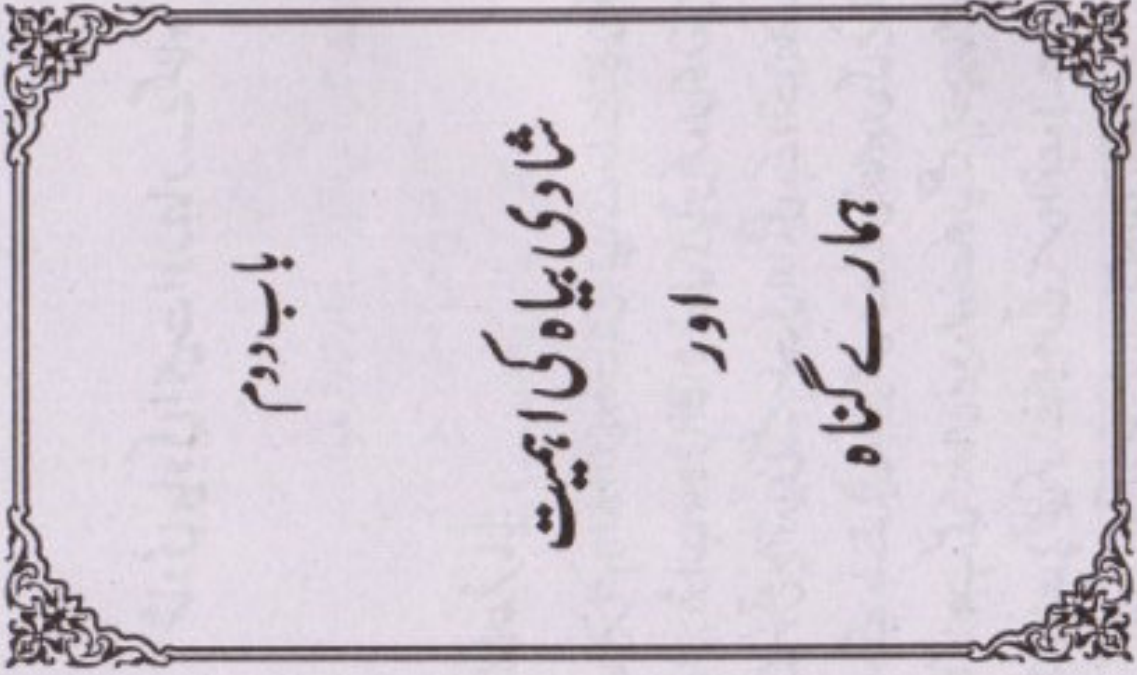 باب دوم
شادی بیاہ کی اہمیت
اور
ہمارے گناہ